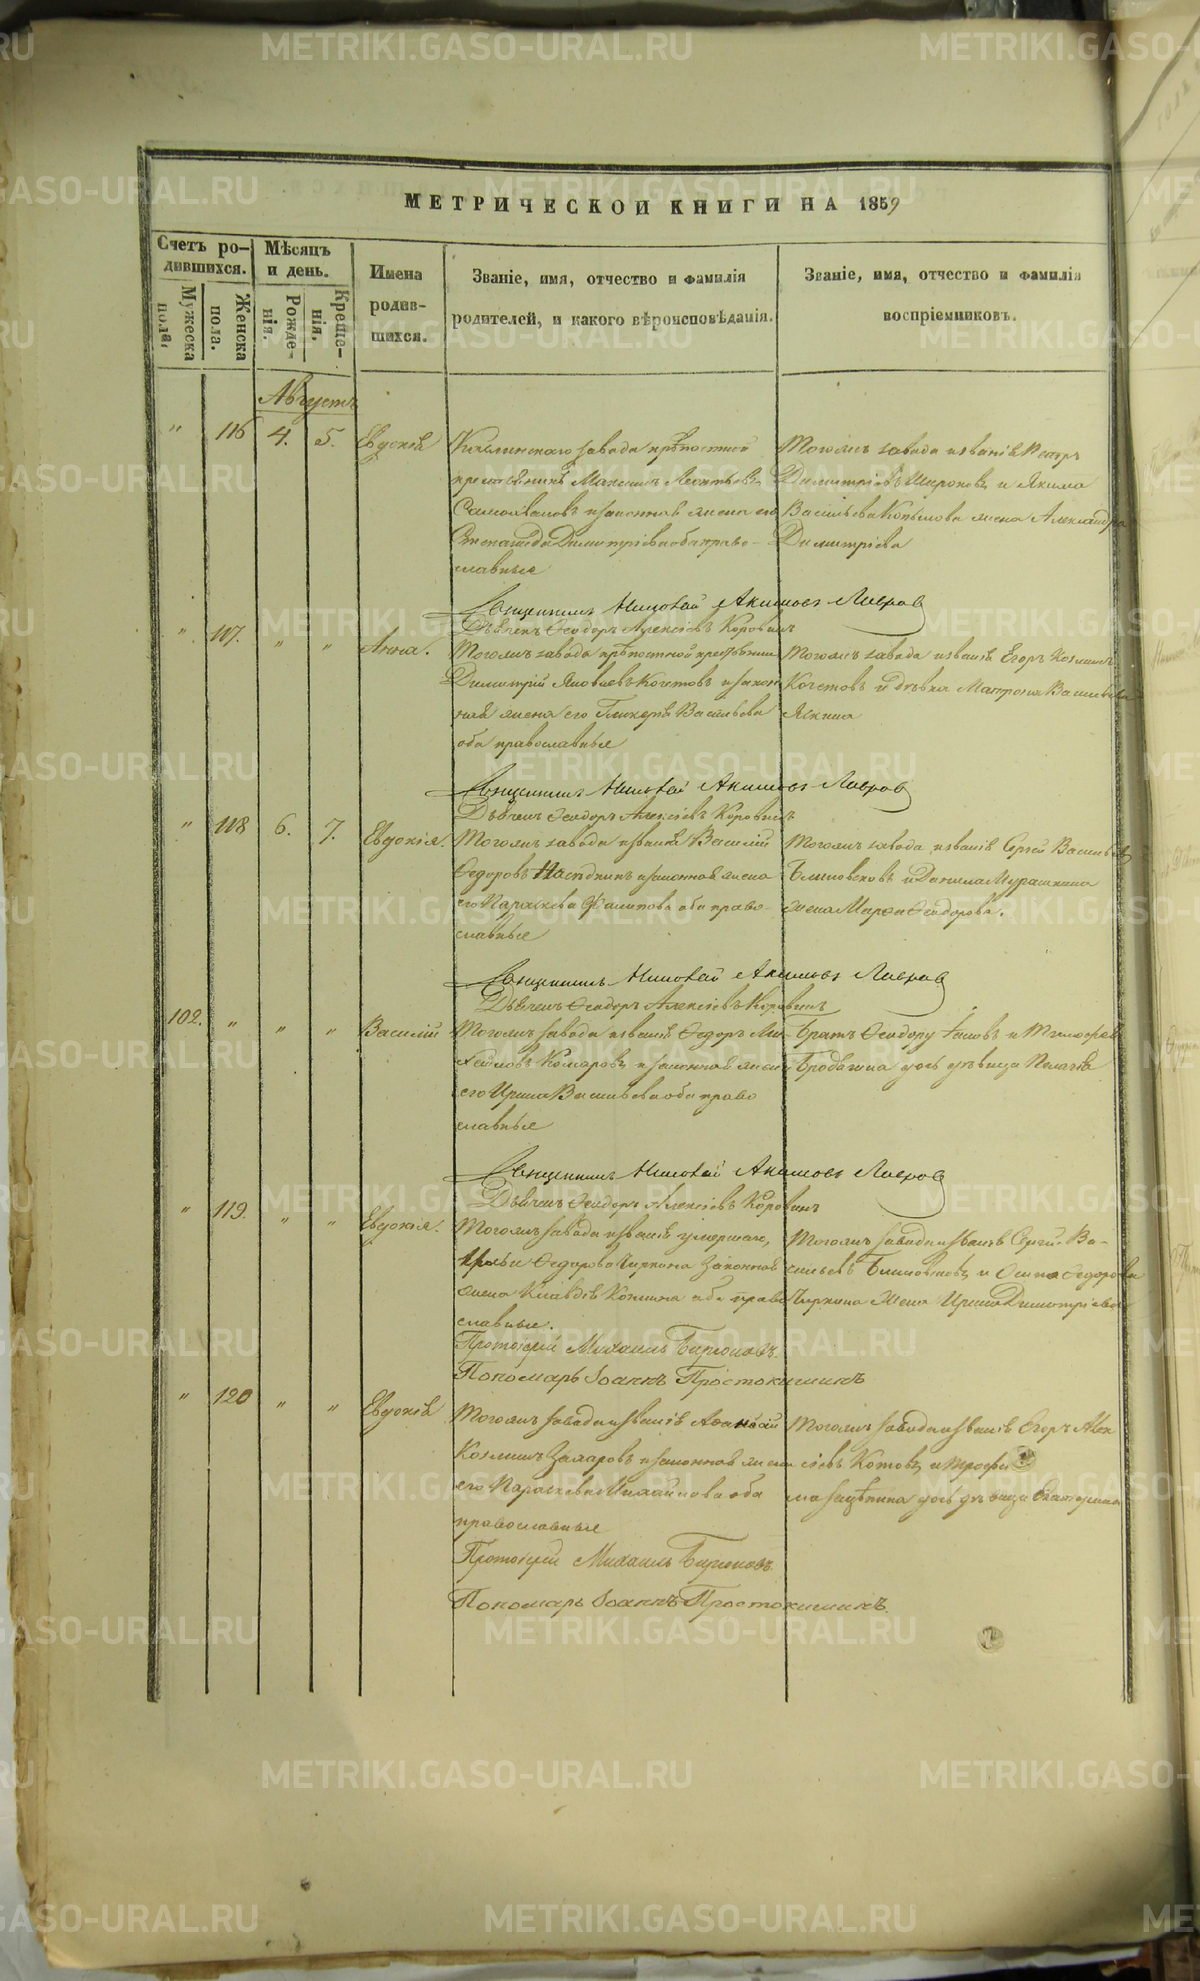 МЕТРИЧЕСКОЙ КНИГИ НА 1859
Счетъ родившихся.
Мужеска пола.
Женска пола.
Мѣсяцъ и день.
Рожденія.
Крещенія.
Имена родившихся.
Званіе, имя, отчество и фамилія родителей, и какого вѣроисповѣданія.
Званіе, имя, отчество и фамилія воспріемниковъ.
Августъ
" 116 4. 5. Евдокія
завода крѣпостной
Максимъ Леонтьевъ
и законная жена его
Димитріева оба право-
славные
Тогожъ завода и званія Петръ
Димитріевъ Широковъ и Якима
Васильева Копылова жена Александра
Димитріева
Священникъ Николай Акимовъ Лавровъ
Дьячекъ Ѳеодоръ Алексіевъ Коровинъ
" 117. " " Анна.
Тогожъ завода крѣпостной
Димитрій Яковлевъ Кочетовъ и закон
ная жена его Гликерія Васильева
оба православные
Тогожъ завода и званія Егоръ Козминъ
Кочетовъ и дѣвка Матрона Васильева
Священникъ Николай Акимовъ Лавровъ
Дьячекъ Ѳеодоръ Алексіевъ Коровинъ
" 118 6. 7. Евдокія.
Тогожъ завода и званія Василій
Ѳедоровъ и законная жена
его Параскева Филипова оба право-
славные
Тогожъ завода и званія Сергѣй Васильевъ
Блиновсковъ и Данила Мурашкина
жена Марѳа Ѳеодорова.
Священникъ Николай Акимовъ Лавровъ
Дьячекъ Ѳеодоръ Алексіевъ Коровинъ
102. " " " Василій
Тогожъ завода и званія Ѳедоръ Ми-
хайловъ Комаровъ и законная жена
его Ирина Васильева оба право
славные
Братъ Ѳеодору и Тимоѳея
Бродягина дочь дѣвица Пелагія
Священникъ Николай Акимовъ Лавровъ
Дьячекъ Ѳеодоръ Алексіевъ Коровинъ
" 119. " " Евдокія.
Тогожъ завода и званія умершаго,
Ѳедорова Чиркина законная
жена Клавдія оба право
славные.
Тогожъ завода и званія Сергѣй Ва-
сильевъ Блиновсковъ и Осипа Ѳедорова
Чиркина жена Ирина Димитріева
Протоіерей Михаилъ Бирюковъ.
Пономарь Іоаннъ Простокишинъ
" 120 " " Евдокія
Тогожъ завода и званія Аѳанасій
Козминъ Захаровъ и законная жена
его Параскева Михайлова оба
православные
Тогожъ завода и званія Егоръ Алек
сіевъ Котовъ и Трофи
ма дочь дѣвица Екатерина
Протоіерей Михаилъ Бирюковъ.
Пономарь Іоаннъ Простокишинъ.
METRIKI.GASO-URAL.RU